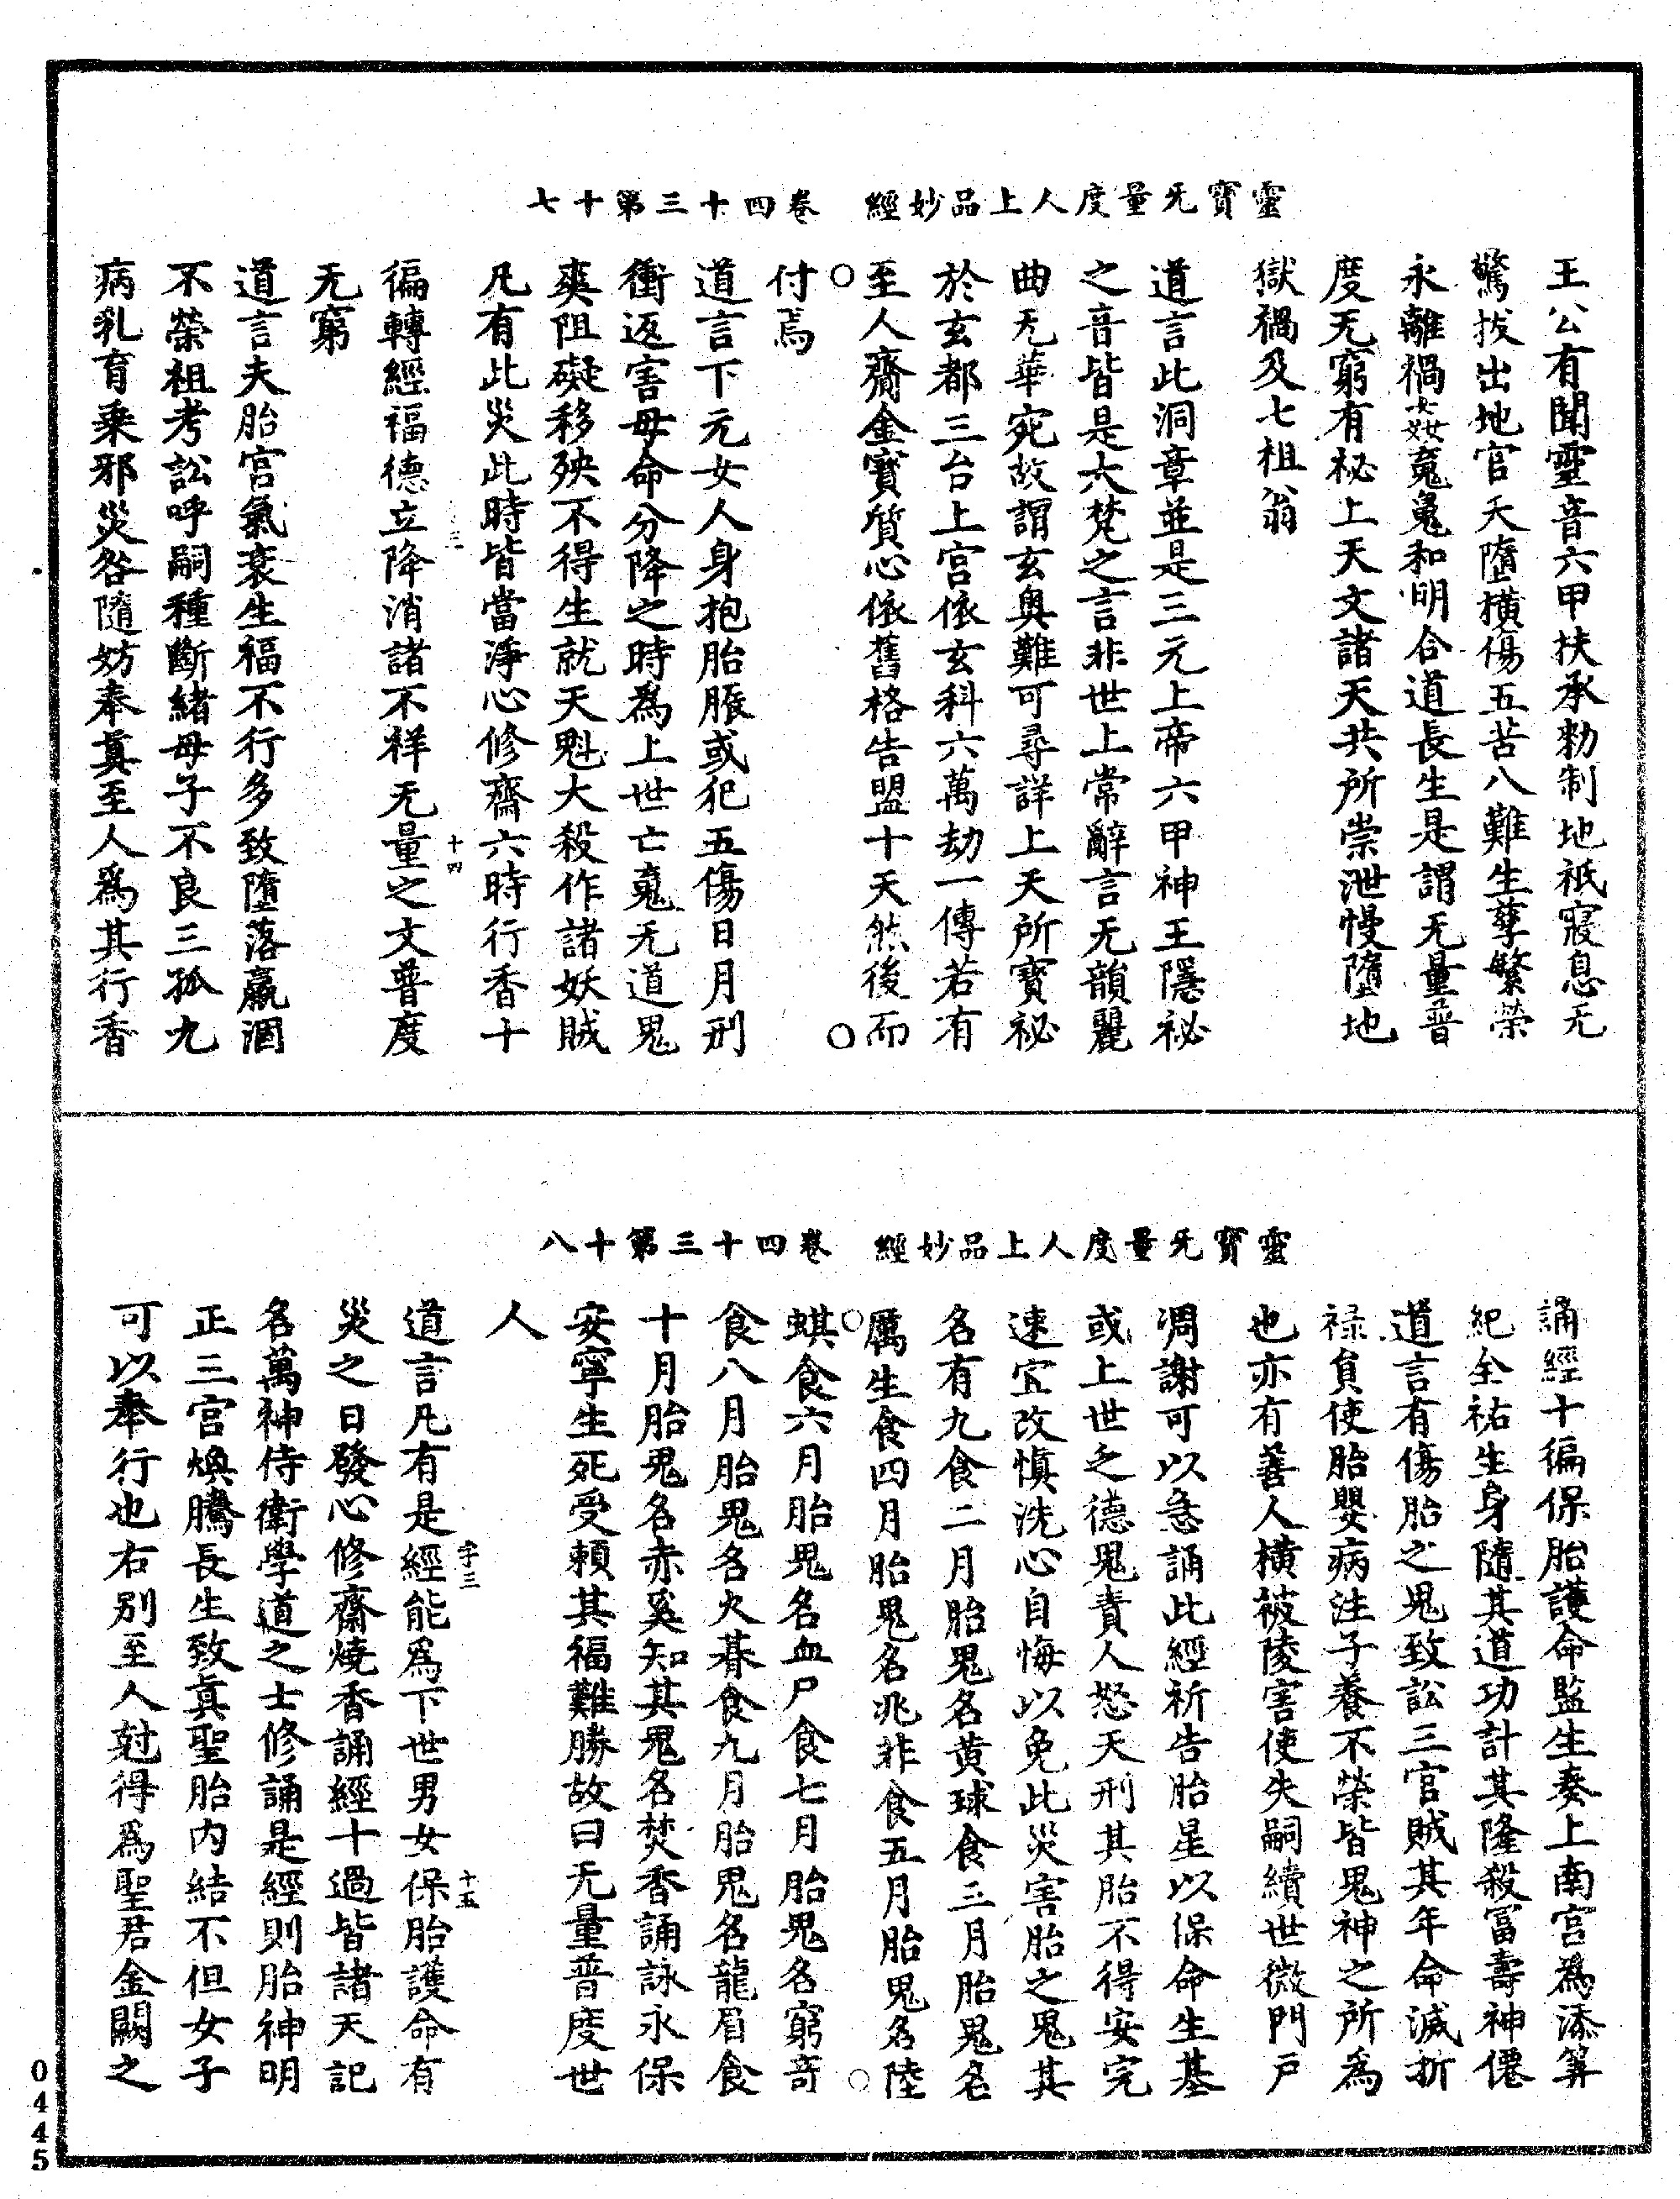 靈寶无量度人上品妙經　卷四十三第十七
王公有聞靈音六甲扶承勑制地祇寢息无
驚拔出地官夭墮橫傷五苦八難生孳繁榮
永離禍姦寃䰟和明合道長生是謂无量普
度无窮有祕上天文諸天共所崇泄慢墮地
獄禍及七祖翁
道言此洞章並是三元上帝六甲神王隱祕
之音皆是大梵之言非世上常辭言无韻麗
曲无華宛故謂玄奧難可尋詳上天所寶祕
於玄都三台上宮依玄科六萬劫一傳若有
至人齎金寶質心依舊格告盟十天然後而
付焉
道言下元女人身抱胎脹或犯五傷日月刑
衝返害母命分降之時為上世亡䰟无道鬼
爽阻礙移殃不得生就天魁大殺作諸妖賊
凡有此災此時皆當淨心修齋六時行香十
徧轉經福德立降消諸不祥无量之文普度
无窮
道言夫胎宮氣衰生福不行多致墮落羸涸
不榮祖考訟呼嗣種斷緒母子不良三孤九
病乳育乘邪災咎隨妨奉真至人為其行香
十四
靈寶无量度人上品妙經　卷四十三第十八
誦經十徧保胎護命監生奏上南宮為添筭
紀全祐生身隨其道功計其隆殺富壽神僊
道言有傷胎之鬼致訟三官賊其年命減折
祿負使胎嬰病注子養不榮皆鬼神之所為
也亦有善人橫被陵害使失嗣續世微門戶
凋謝可以急誦此經祈告胎星以保命生基
或上世之德鬼責人怒天刑其胎不得安完
速宜改慎洗心自悔以免此災害胎之鬼其
名有九食二月胎鬼名黃球食三月胎鬼名
厲生食四月胎鬼名兆非食五月胎鬼名陸
蜞食六月胎鬼名血尸食七月胎鬼名窮奇
食八月胎鬼名火碁食九月胎鬼名龍眉食
十月胎鬼名赤奚知其鬼名焚香誦詠永保
安寧生死受賴其福難勝故曰无量普度世
人
道言凡有是經能為下世男女保胎護命有
災之日發心修齋燒香誦經十過皆諸天記
名萬神侍衛學道之士修誦是經則胎神明
正三宮煥騰長生致真聖胎內結不但女子
可以奉行也右別至人尅得為聖君金闕之
字三
十五
0445